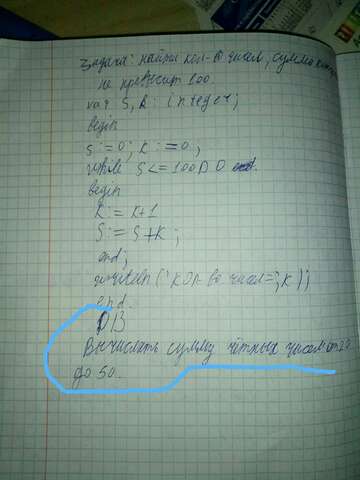 Задача: найти кол-во чисел, сумма кото
не превысит 100.
var S, k: integer;
begin
s:=0; k:=0;
while S<=100 DO
begin
k:=k+1
S:=S+k;
end;
writeln('кол во чисел=', k);
end.
D/З
Вычислить сумму чётных чисел от 20
до 50.